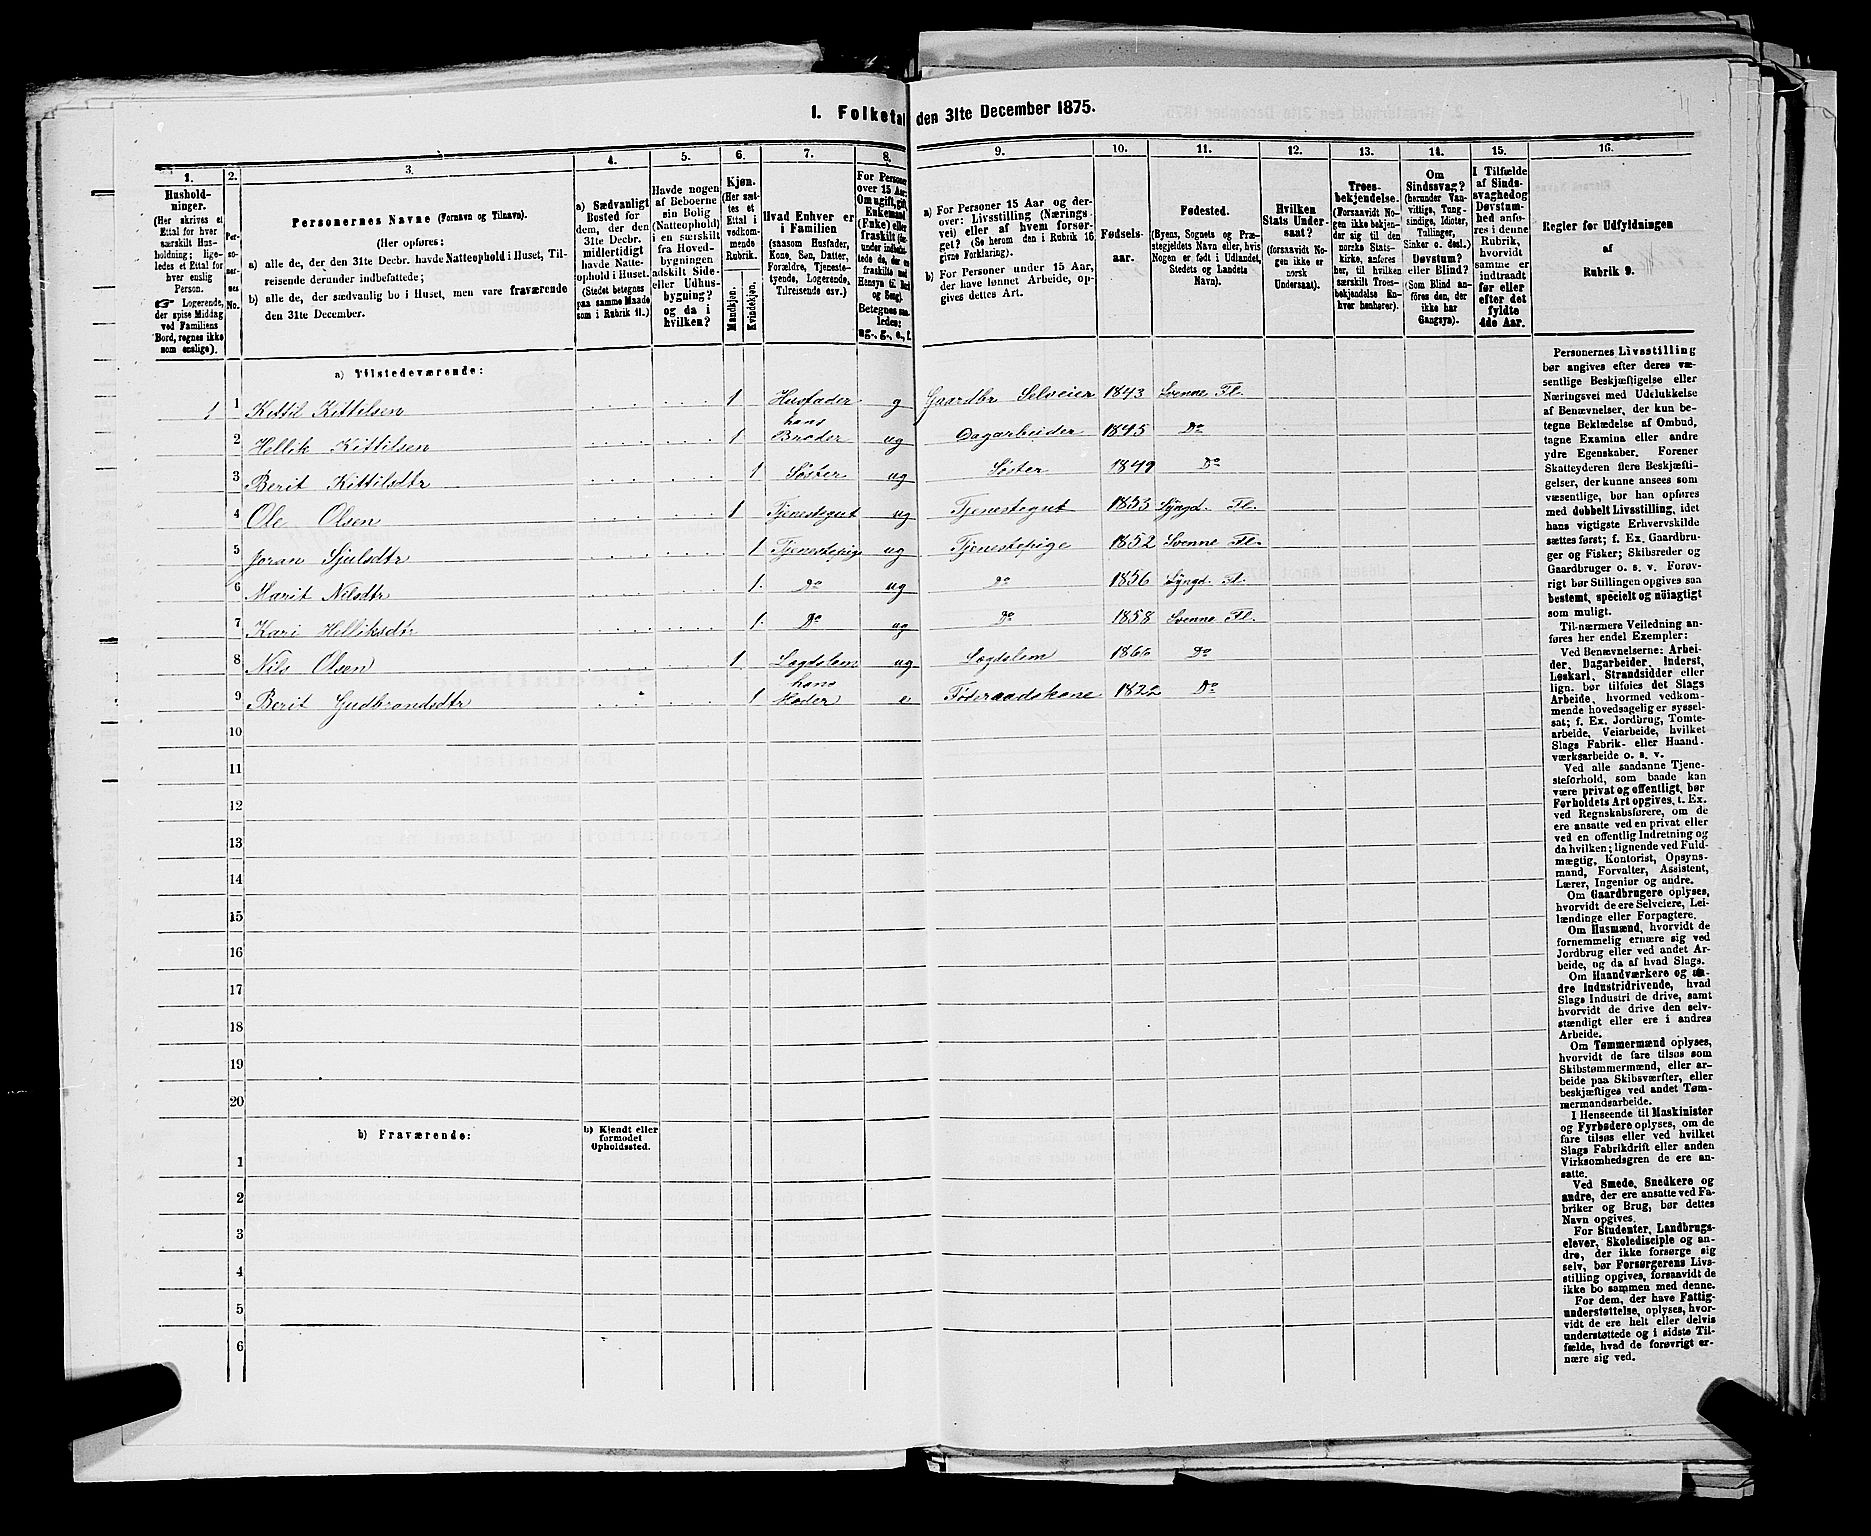 1. Folketal den 31te December 1875.
1. 2. 3. 4. 5. 6. 7. 8. 9. 10. 11. 12. 13. 14. 15. 16.
Hushold-
ninger.
(Her skrives et
Ettal for hver
særskilt Hus-
holdning; lige-
ledes et Ettal for
hver enslig
Person.
☞ Logerende,
der spise Middag
ved Familiens
Bord, regnes ikke
som enslige).
Per-
so-
ner-
nes
No.
Personernes Navne (Fornavn og Tilnavn).
(Her opføres:
a) alle de, der den 31te Decbr. havde Natteophold i Huset, Til-
reisende derunder indbefattede;
b) alle de, der sædvanlig bo i Huset, men vare fraværende
den 31te December.
a) Sædvanligt
Bosted for
dem, der den
31te Decbr.
midlertidigt
havde Natte-
ophold i Huset.
(Stedet betegnes
paa samme Maade
som i Rubrik 11.)
Havde nogen
af Beboerne
sin Bolig
(Natteophold)
i en særskilt
fra Hoved-
bygningen
adskilt Side-
eller Udhus-
bygning?
og da i
hvilken?
Kjøn.
(Her sæt-
tes et
Ettal i
vedkom-
mende
Rubrik.
Mandkjøn.
Kvindekjøn.
Hvad Enhver er
i Familien
(saasom Husfader,
Kone, Søn, Datter,
Forældre, Tjeneste-
tyende, Logerende,
Tilreisende osv.)
For Personer
over 15 Aar:
Om ugift, gift,
Enkemand
(Enke) eller
fraskilt
Betegnes saa-
ledes:
ug., g., e., f.
a) For Personer 15 Aar og der-
over: Livsstilling (Nærings-
vei) eller af hvem forsør-
get? (Se herom den i Rubrik 16
givne Forklaring).
b) For Personer under 15 Aar,
der have lønnet Arbeide, op-
gives dettes Art.
Fødsels-
aar.
Fødested.
(Byens, Sognets og Præ-
stegjeldets Navn eller, hvis
Nogen er født i Udlandet,
Stedets og Landets
Navn).
Hvilken
Stats Under-
saat?
(forsaavidt No-
gen ikke er
norsk
Undersaat).
Troes-
bekjendelse.
(Forsaavidt No-
gen ikke bekjen-
der sig til den
norske Stats-
kirke, anføres
her, til hvilken
særskilt Troes-
bekjendelse En-
hver henhører).
Om
Sindssvag?
(herunder Van-
vittige, Tung-
sindige, Idioter,
Tullinger,
Sinker o. desl.)
Døvstum?
eller Blind?
(Som Blind an-
føres den, der
ikke har
Gangsyn).
I Tilfælde
af Sinds-
svaghed og
Døvstum-
hed anfø-
res i denne
Rubrik,
hvorvidt
samme er
indtraadt
før eller
efter det
fyldte
4de Aar.
Regler for Udfyldningen
af
Rubrik 9.
a) Tilstedeværende:
1 1 Kittil Kittilsen 1 Husfader g Gaardbr Selveier 1843 Svenne Fl.
2 Hellik Kittilsen 1 hans Broder ug Dagarbeider 1845 Do
3 Berit Kittilsdtr 1 Søster ug Søster 1849 Do
4 Ole Olsen 1 Tjenestegut ug Tjenestegut 1853 Lyngd. Fl.
5 Joran Sjulsdtr 1 Tjenestepige ug Tjenestepige 1852 Svenne Fl.
6 Marit Nilsdtr 1. Do ug Do 1856 Lyngd. Fl.
7 Kari Helliksdtr 1. Do ug Do 1858 Svenne Fl.
8 Nils Olsen 1. Lægdslem ug Lægdslem Do
9 Berit Gudbrandsdtr 1 hans Moder e Føderaadskone 1822 Do
10
11
12
13
14
15
16
17
18
19
20
b) Fraværende:
b) Kjendt eller
formodet
Opholdssted.
1
2
3
4
5
6
Personernes Livsstilling
bør angives efter deres væ-
sentlige Beskjæftigelse eller
Næringsvei med Udelukkelse
af Benævnelser, der kun be-
tegne Beklædelse af Ombud,
tagne Examina eller andre
ydre Egenskaber. Forener
Skatteyderen flere Beskjæfti-
gelser, der kunne ansees som
væsentlige, bør han opføres
med dobbelt Livsstilling, idet
hans vigtigste Erhvervskilde
sættes først; f. Ex. Gaardbru-
ger og Fisker; Skibsreder og
Gaardbruger o. s. v. Forøv-
rigt bør Stillingen opgives saa
bestemt, specielt og nøiagtigt
som muligt.
Til nærmere Veiledning an-
føres her endel Exempler:
Ved Benævnelserne: Arbei-
der, Dagarbeider, Inderst,
Løskarl, Strandsidder eller
lign. bør tilføies det Slags
Arbeide, hvormed vedkom-
mende hovedsagelig er syssel-
sat; f. Ex. Jordbrug, Tomte-
arbeide, Veiarbeide, hvilket
Slags Fabrik- eller Haand-
værksarbeide o. s. v.
Ved alle saadanne Tjene-
steforhold, som baade kan
være privat og offentligt, bør
Forholdets Art opgives, t. Ex.
ved Regnskabsførere, om de
ere ansatte ved en privat eller
ved en offentlig Indretning og
da hvilken; lignende ved Fuld-
mægtig, Kontorist, Opsyns-
mand, Forvalter, Assistent,
Lærer, Ingeniør og andre.
Om Gaardbrugere oplyses,
hvorvidt de ere Selveiere, Lei-
lændinge eller Forpagtere.
Om Husmænd, hvorvidt de
fornemmelig ernære sig ved
Jordbrug eller ved andet Ar-
beide, og da af hvad Slags.
Om Haandværkere og an-
dre Industridrivende, hvad
Slags Industri de drive, samt
hvorvidt de drive den selv-
stændigt eller ere i andres
Arbeide.
Om Tømmermænd oplyses,
hvorvidt de fare tilsøs som
Skibstømmermænd, eller ar-
beide paa Skibsværfter, eller
beskjæftiges ved andet Tøm-
mermandsarbeide.
I Henseende til Maskinister
og Fyrbødere oplyses, om de
fare tilsøs eller ved hvilket
Slags Fabrikdrift eller anden
Virksomhedsgren de ere an-
satte.
Ved Smede, Snedkere og
andre, der ere ansatte ved Fa-
briker og Brug, bør dettes
Navn opgives.
For Studenter, Landbrugs-
elever, Skoledisciple og an-
dre, der ikke forsørge sig
selv, bør Forsørgerens Livs-
stilling opgives, forsaavidt de
ikke bo sammen med denne.
For dem, der have Fattig-
understøttelse, oplyses, hvor-
vidt de ere helt eller delvis
understøttede og i sidste Til-
fælde, hvad de forøvrigt er-
nære sig ved.